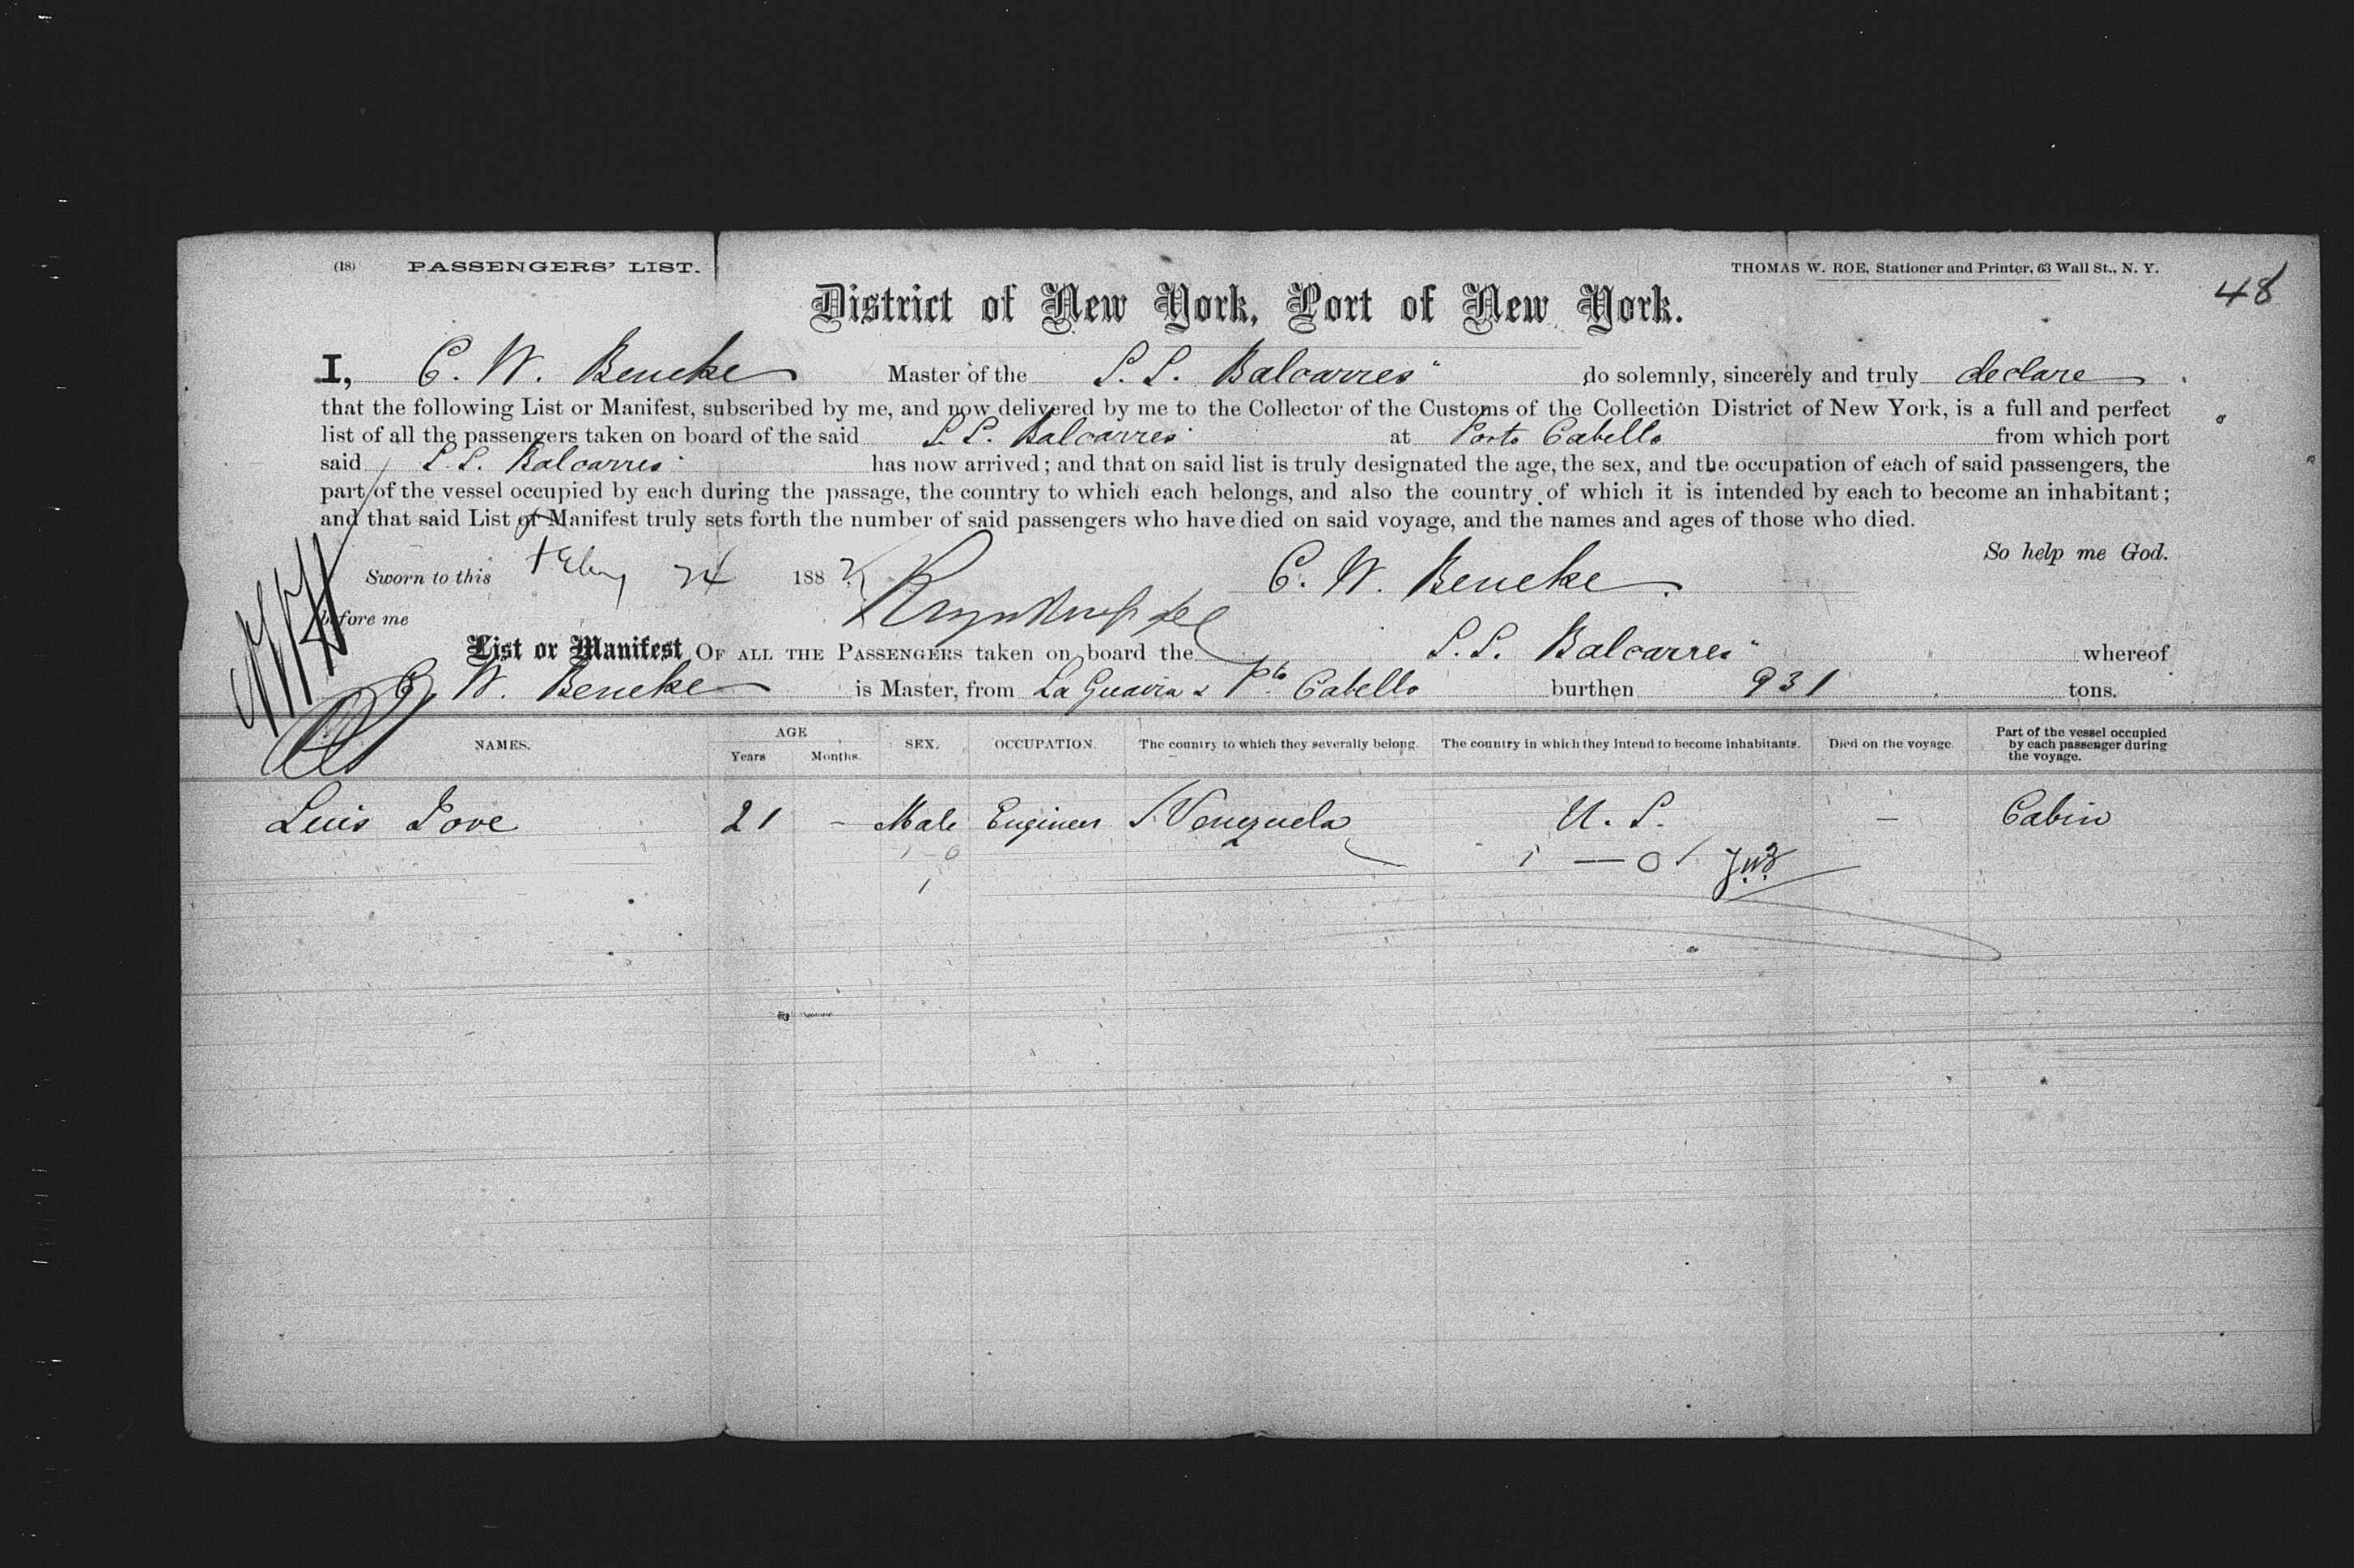 (18) PASSENGERS' LIST. THOMAS W. ROE, Stationer and Printer, 63 Wall St., N. Y.
48
District of New York, Port of New York.
I, C. W. Beneke Master of the S. S. Balcarres" do solemnly, sincerely and truly declare
that the following List or Manifest, subscribed by me, and now delivered by me to the Collector of the Customs of the Collection District of New York, is a full and perfect
list of all the passengers taken on board of the said S. S. Balcarres" at Porto Cabello from which port
said S. S. Balcarres" has now arrived; and that on said list is truly designated the age, the sex, and the occupation of each of said passengers, the
part of the vessel occupied by each during the passage, the country to which each belongs, and also the country of which it is intended by each to become an inhabitant;
and that said List or Manifest truly sets forth the number of said passengers who have died on said voyage, and the names and ages of those who died.
So help me God.
Sworn to this Feby 24 1882 C. W. Beneke
before me
List or Manifest OF ALL THE PASSENGERS taken on board the S. S. Balcarres" whereof
C. W. Beneke is Master, from La Guaira & Pto Cabello burthen 931 tons.
NAMES. AGE Years Months. SEX. OCCUPATION. The country to which they severally belong. The country in which they intend to become inhabitants. Died on the voyage. Part of the vessel occupied by each passenger during the voyage.
Luis Jove 21 - Male Engineer Venezuela U. S. - Cabin
1 - 0 1 — 0
1